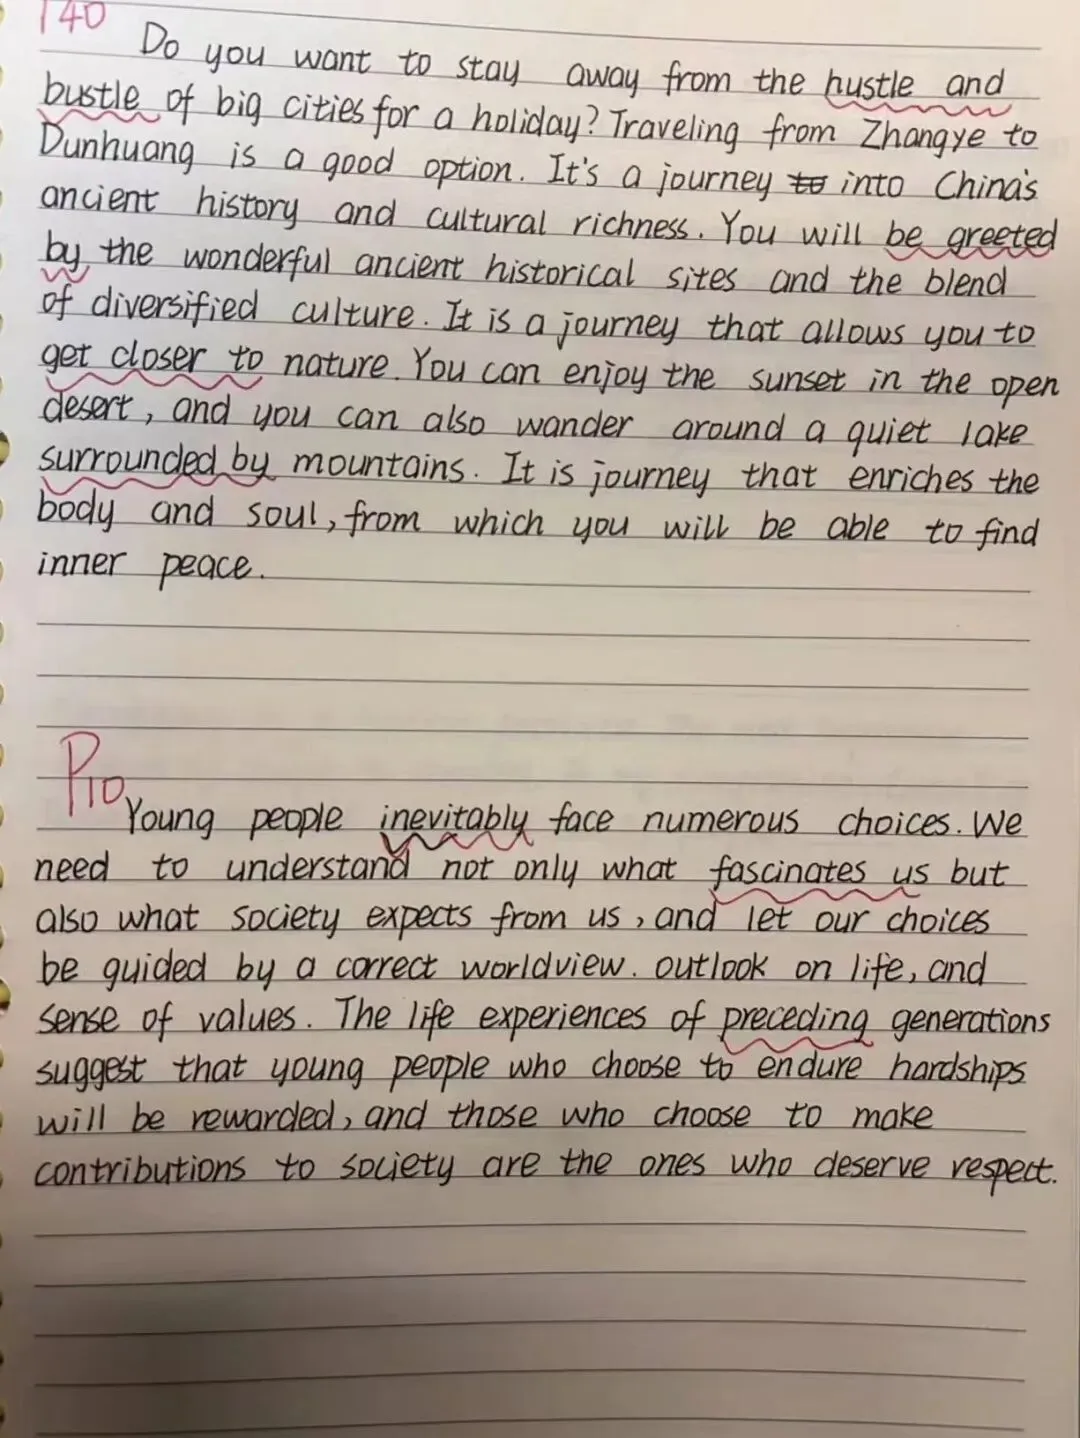 140
Do you want to stay away from the hustle and
bustle of big cities for a holiday? Traveling from Zhangye to
Dunhuang is a good option. It's a journey to into China's
ancient history and cultural richness. You will be greeted
by the wonderful ancient historical sites and the blend
of diversified culture. It is a journey that allows you to
get closer to nature. You can enjoy the sunset in the open
desert, and you can also wander around a quiet lake
surrounded by mountains. It is journey that enriches the
body and soul, from which you will be able to find
inner peace.
P10
Young people inevitably face numerous choices. We
need to understand not only what fascinates us but
also what society expects from us, and let our choices
be guided by a correct worldview. outlook on life, and
sense of values. The life experiences of preceding generations
suggest that young people who choose to endure hardships
will be rewarded, and those who choose to make
contributions to society are the ones who deserve respect.